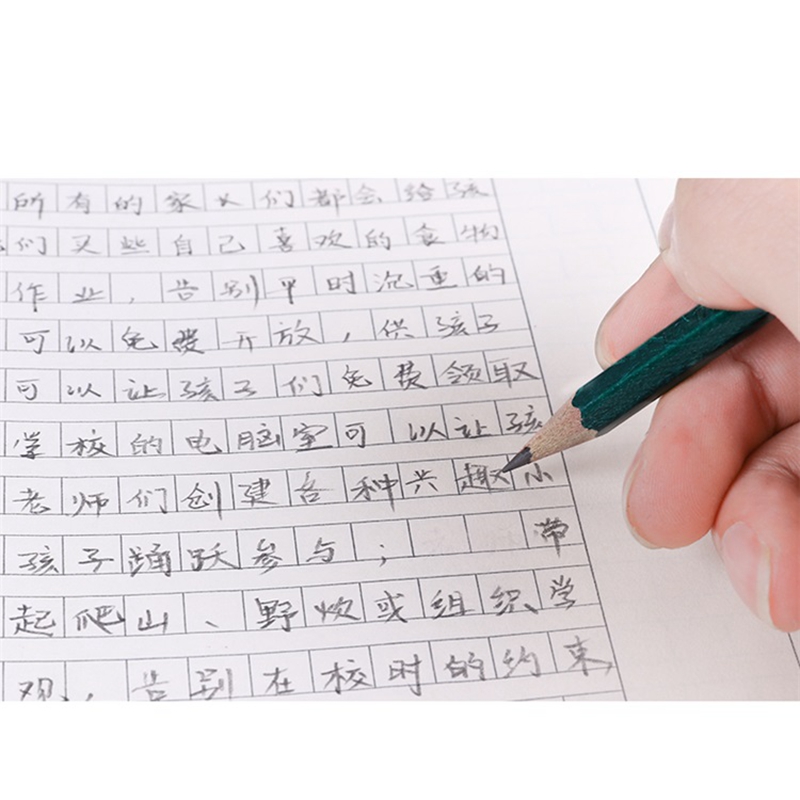 所有的家长们都会给孩
们买些自己喜欢的食物
作业，告别平时沉重的
可以免费开放，供孩子
可以让孩子们免费领取
学校的电脑室可以让孩
老师们创建各种兴趣小
孩子踊跃参与；带
起爬山、野炊或组织学
观，告别在校时的约束，